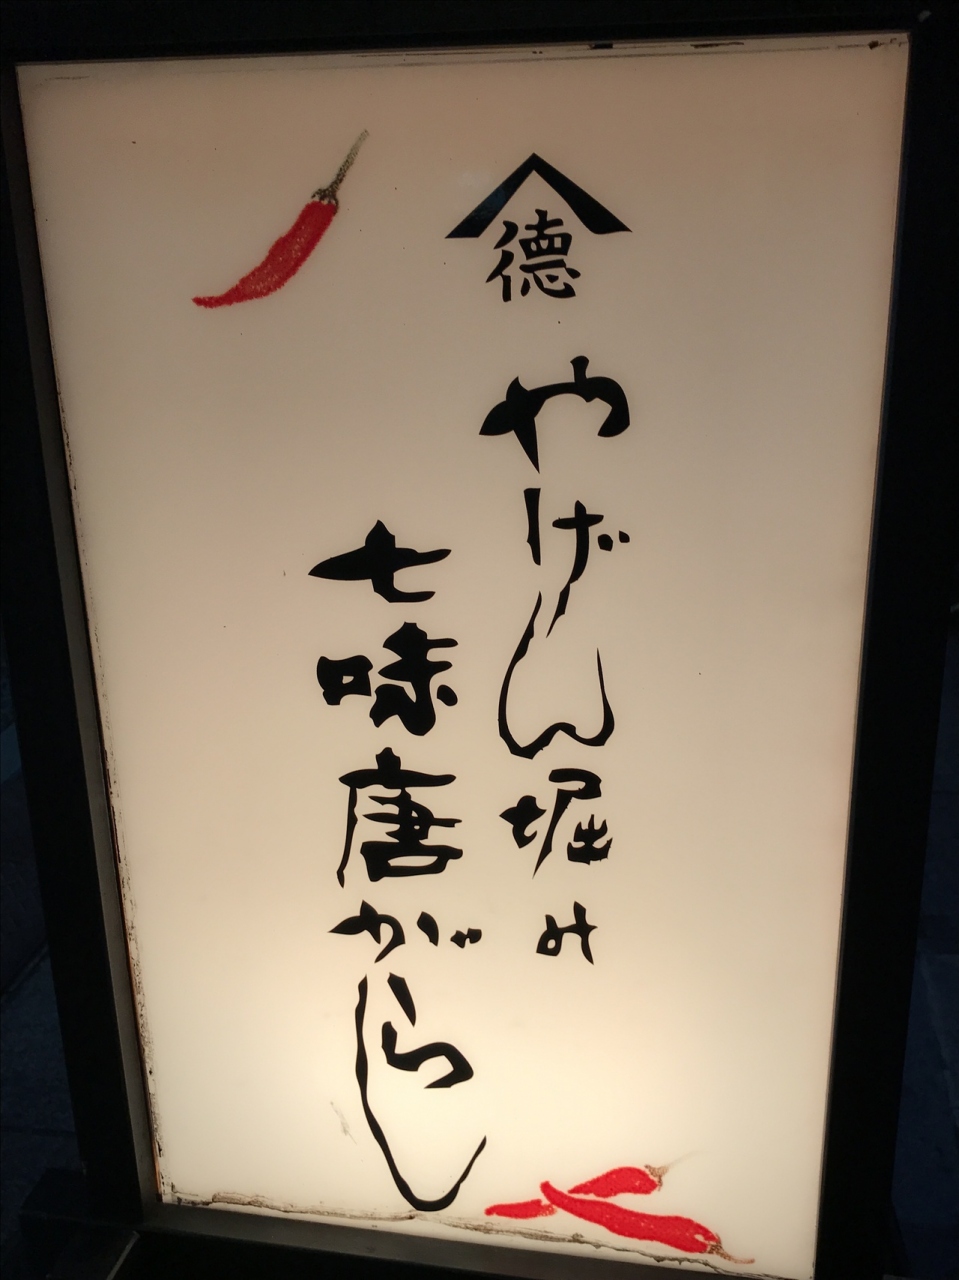 徳
やげん堀の
七味唐がらし